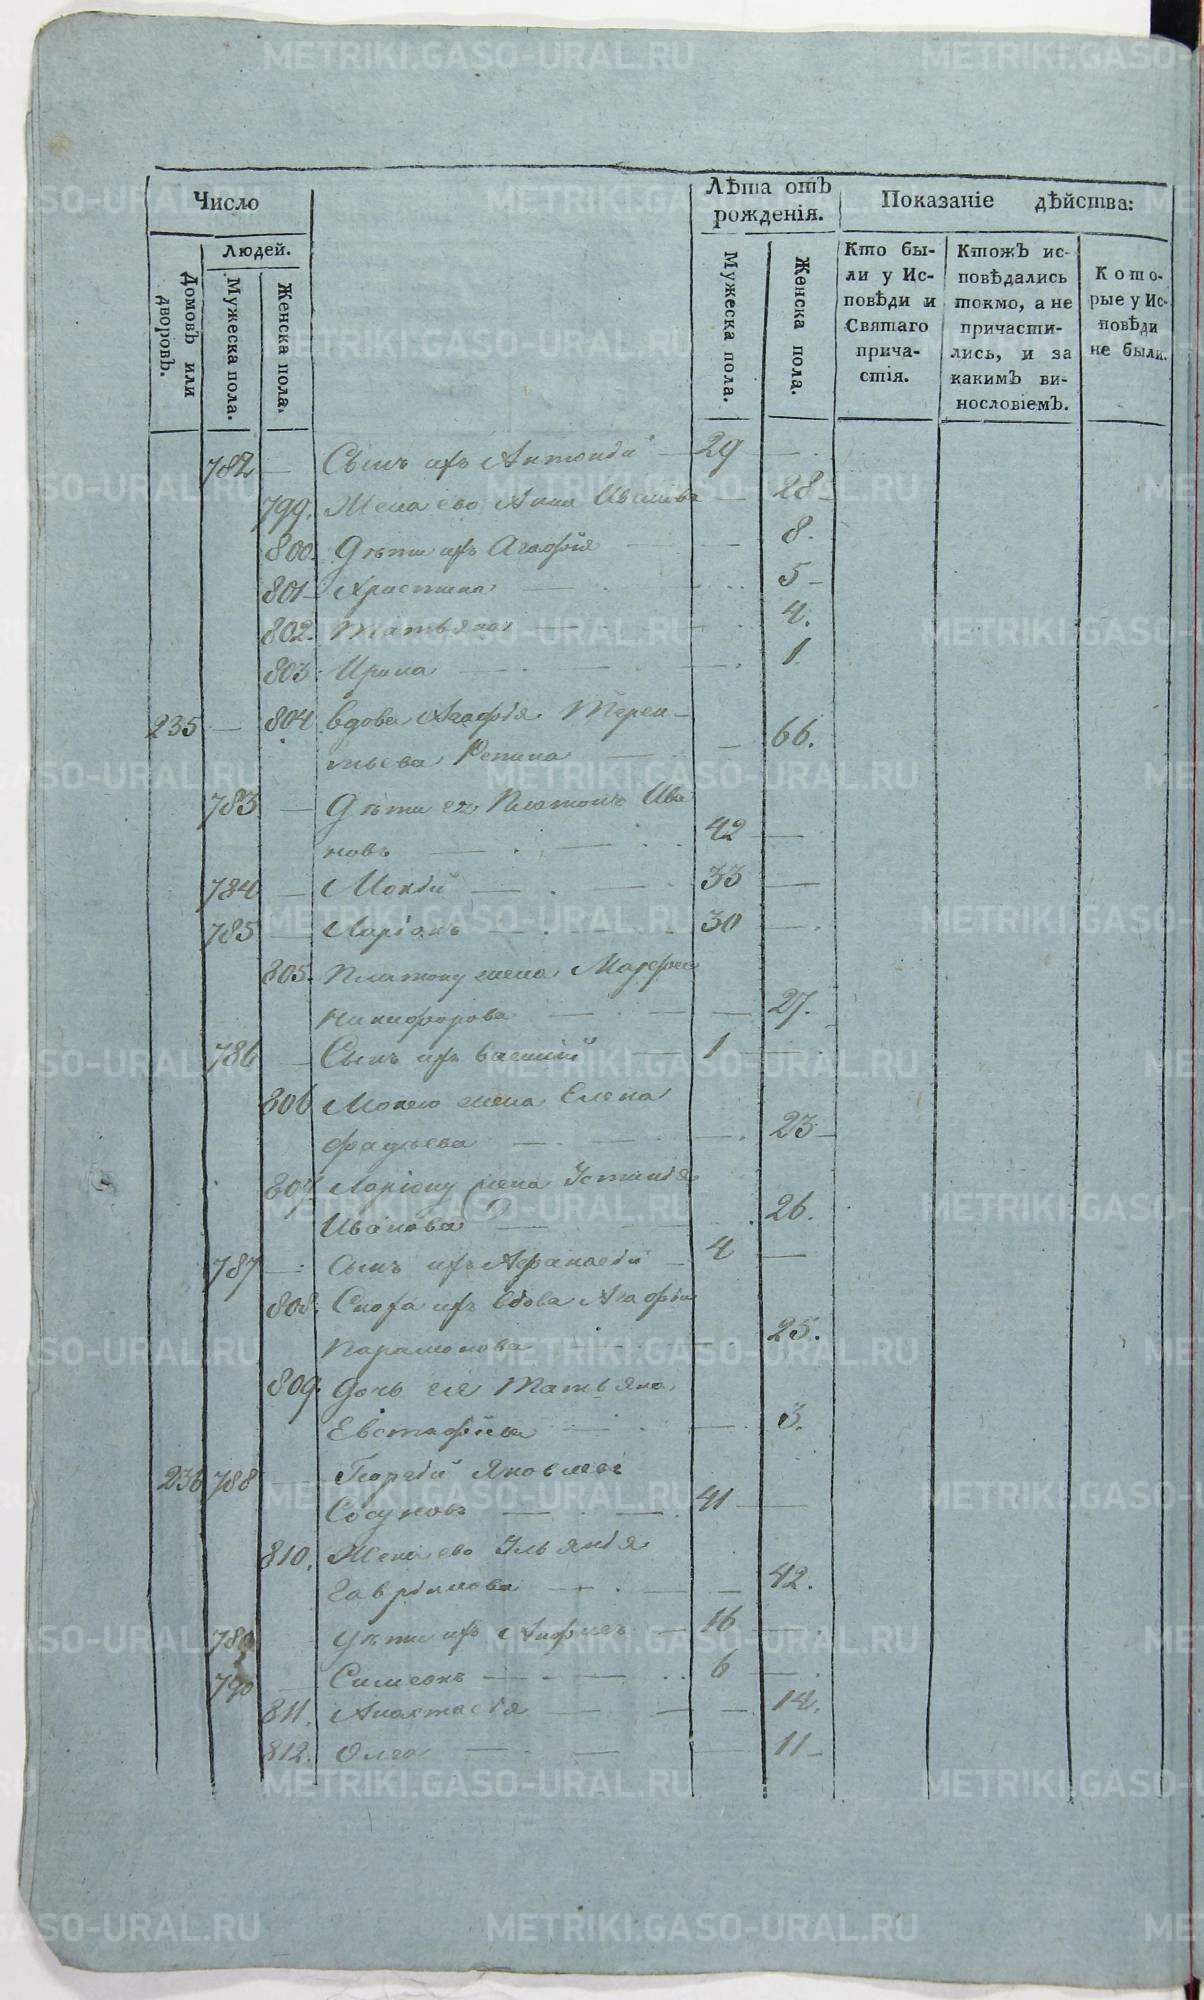 Число
Лѣта отъ рожденія.
Показаніе дѣйства:
Домовъ или дворовъ.
Людей.
Мужеска пола.
Женска пола.
Мужеска пола.
Женска пола.
Кто бы-
ли у Ис-
повѣди и
Святаго
прича-
стія.
Ктожъ ис-
повѣдались
токмо, а не
причасти-
лись, и за
какимъ ви-
нословіемъ.
Кото-
рые у Ис-
повѣди
не были.
782 Сынъ ихъ Антоній 29
799. Жена его Анна Ивлиева 28
800. Дѣти ихъ Агафія 8.
801 Христина 5
802. Татьяна 4.
803 Ирина 1
235 804 Вдова Агафія Терен-
тьева Репина 66.
783 Дѣти ея Платонъ Ива
новъ 42
784 Мокій 33
785 Ларіонъ 30
805. Платону жена Марфа
Никифорова 27.
786 Сынъ ихъ Василій 1
806 Мокею жена Елена
Фадѣева 23
807 Ларіону жена Устинія
Иванова 26.
787 Сынъ ихъ Афанасій 4
808. Сноха ихъ вдова Агафія
Парамонова 25.
809. Дочь ее Татьяна
Евстафіева 3.
236 788 Георгій Яковлевъ
Сосуновъ 41
810. Жена его Ульянія
Гаврилова 42.
789 Дѣти ихъ 16
790 Симеонъ 6
811. Анастасія 14.
812. Олга 11
METRIKI.GASO-URAL.RU